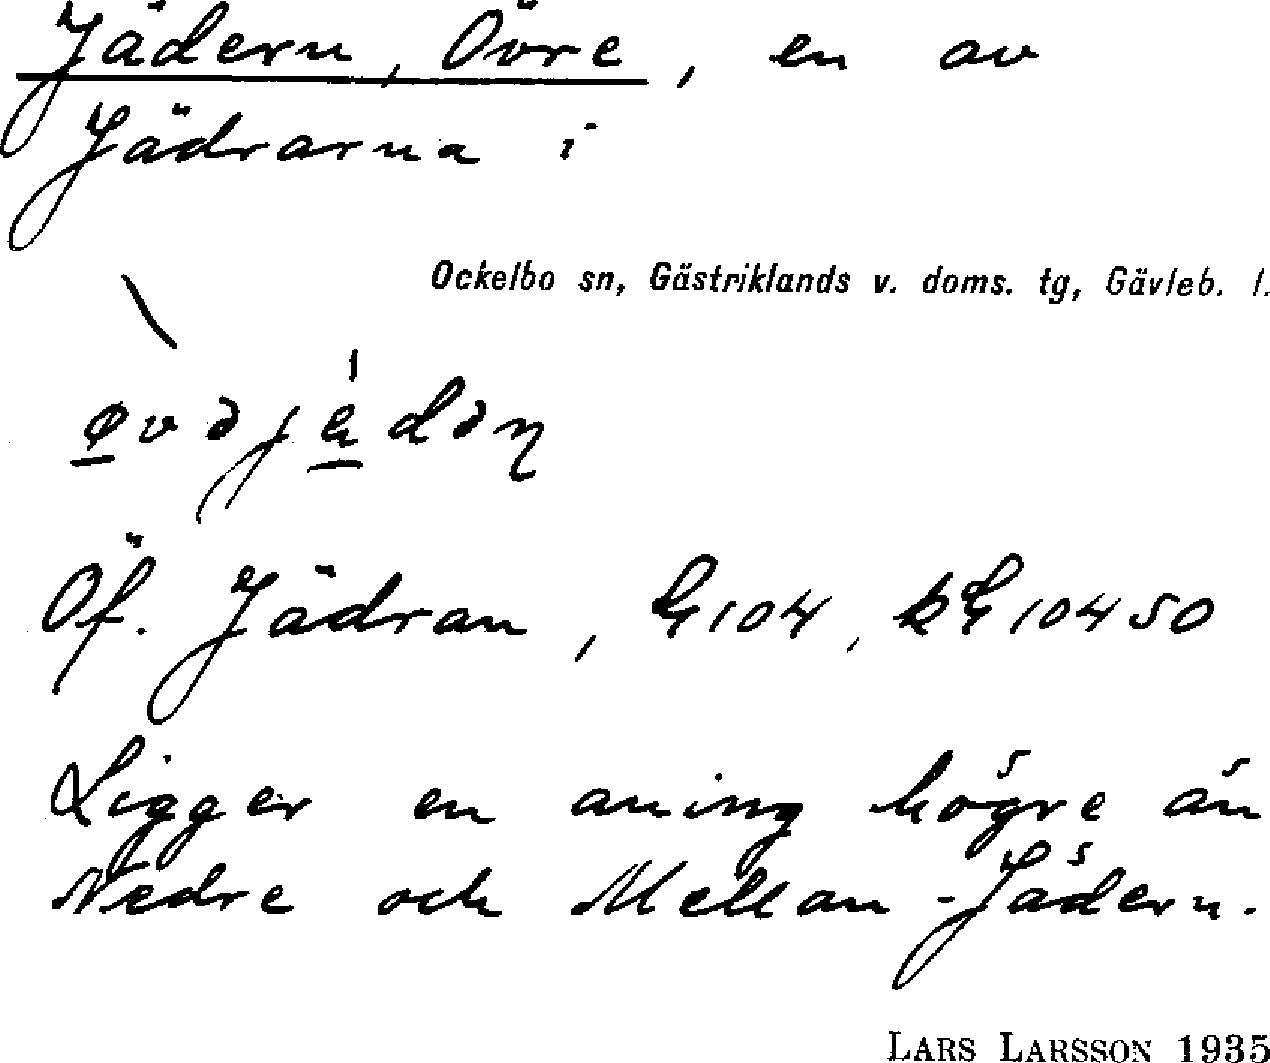 Jädern, Övre, en av
Jädrarna i
Ockelbo sn, Gästriklands v. doms. tg, Gävleb. l.
Öf. Jädran, G104, kG10450
Ligger en aning högre än
Nedre och Mellan-Jädern.
LARS LARSSON 1935